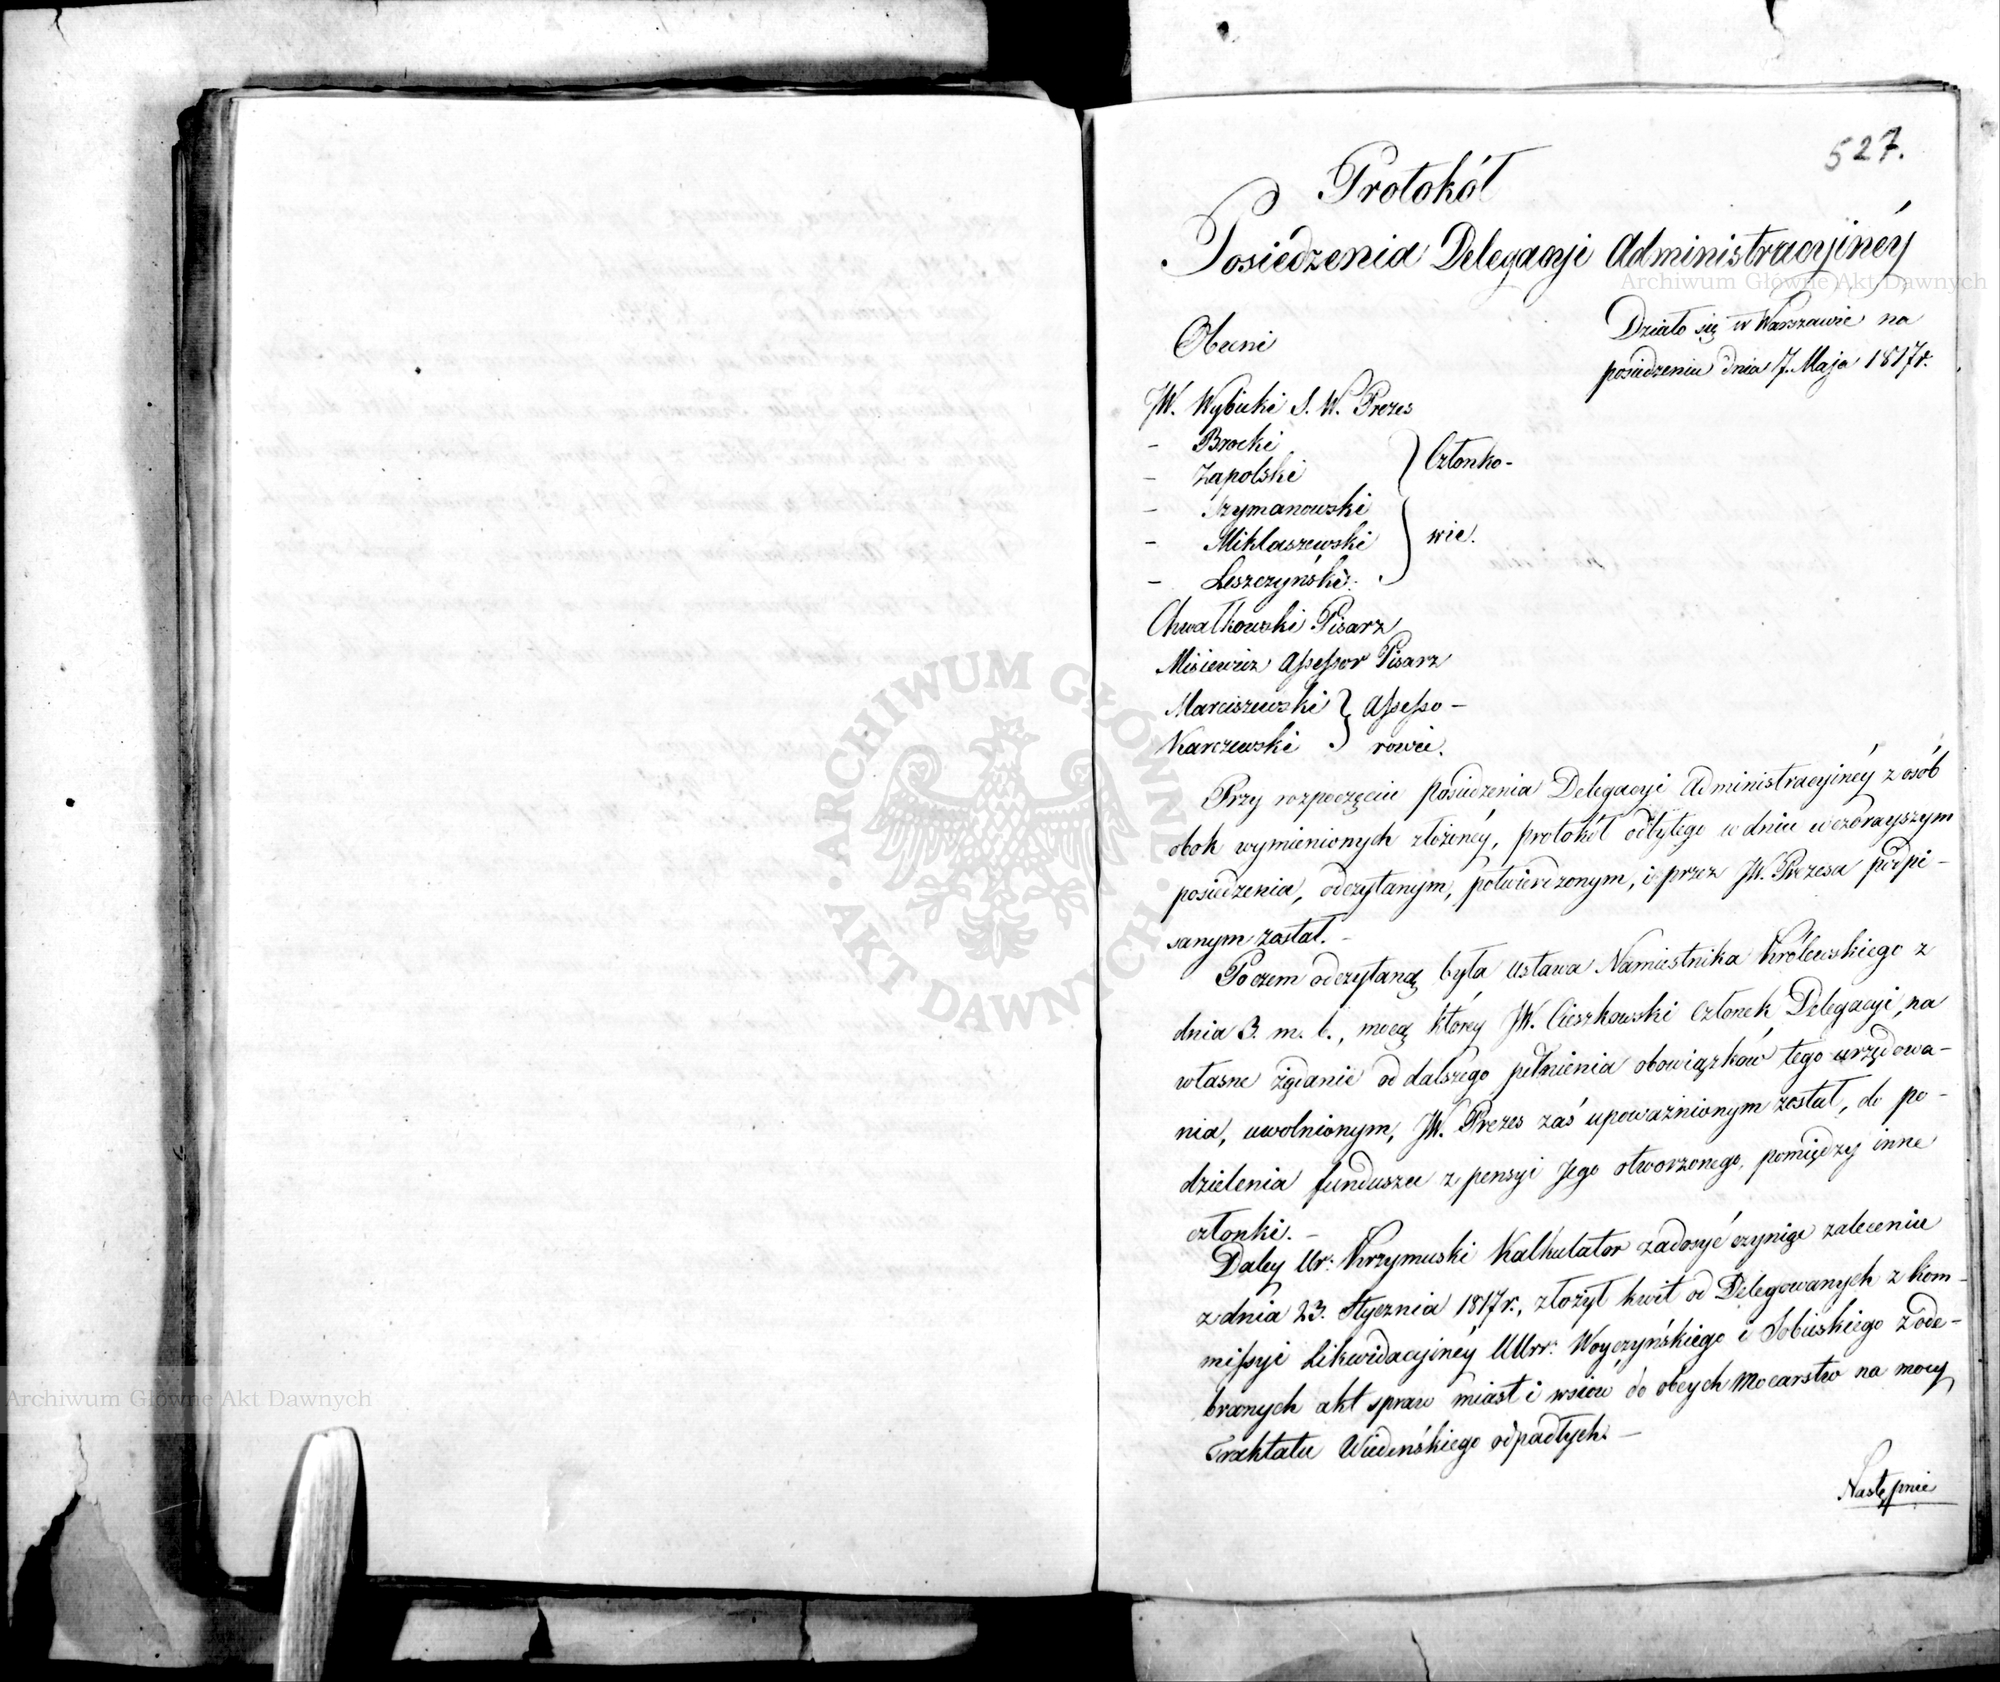 527.
Protokół
Posiedzenia Delegacyi Administracyinéy
Działo się w Warszawie na
posiedzeniu dnia 7. Maja 1817 r.
Obecni
JW. Wybicki S. W. Prezes
- Brocki
- Zapolski
Członko-
- Szymanowski
- Miklaszewski
wie.
- Leszczyński.
Chwałkowski Pisarz
Misiewicz Assessor Pisarz
Marciszewski } Assesso-
Karczewski } rowie.
Przy rozpoczęciu posiedzenia Delegacyi Administracyinéy z osób
obok wymienionych złożonéy, protokół odbytego w dniu wczorayszym
posiedzenia, odczytanym, potwierdzonym, i przez JW. Prezesa podpi-
sanym został. -
Poczem odczytaną była Ustawa Namiestnika Królewskiego z
dnia 3. m. b., mocą którey JW. Cieszkowski Członek Delegacyi, na
własne żądanie od dalszego pełnienia obowiązków tego urzędowa-
nia, uwolnionym, JW. Prezes zaś upoważnionym został, do po-
dzielenia funduszu z pensyi Jego otworzonego, pomiędzy inne
członki. -
Daley Ur: Krzymuski Kalkulator zadosyć czyniąc zaleceniu
z dnia 23. Stycznia 1817 r., złożył kwit od Delegowanych z Kom-
missyi Likwidacyinéy UUrr: Woyczyńskiego i Sobieskiego z ode-
branych akt spraw miast i wsiów do obcych Mocarstw na mocy
Traktatu Wiedeńskiego odpadłych. -
Następnie
Archiwum Główne Akt Dawnych
Archiwum Główne Akt Dawnych
ARCHIWUM GŁÓWNE · AKT DAWNYCH ·